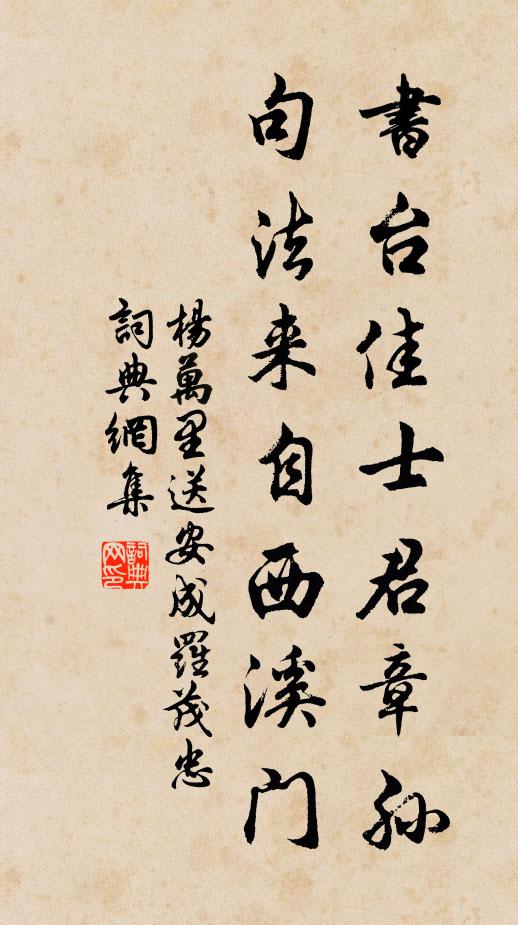 書台佳士君章孫
句法来自西溪门
楊萬里送安成羅茂忠
詞典網集
詞典网印